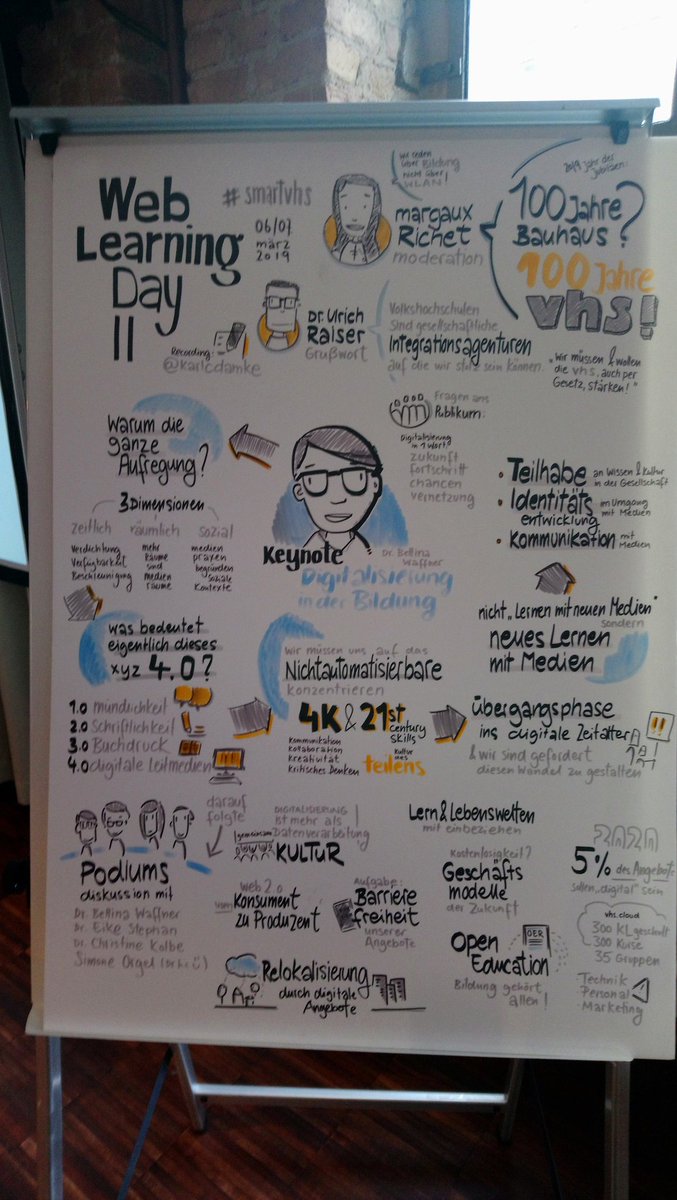 Web
Learning
Day
II
# smartvhs
06/07
märz
2019
Recording:
@karlcdamke
wir reden
über Bildung
nicht über
WLAN!
margaux
Richet
moderation
2019 Jahr der
Jubiläen:
100 Jahre
Bauhaus?
100 Jahre
vhs!
Dr. Ulrich
Raiser
Grußwort
Volkshochschulen
sind gesellschaftliche
Integrationsagenturen
auf die wir stolz sein können.
"wir müssen & wollen
die vhs, auch per
Gesetz, stärken!"
Fragen ans
Publikum:
Digitalisierung
in 1 Wort?
zukunft
fortschritt
chancen
vernetzung
Keynote
Dr. Bettina
Waffner
Digitalisierung
in der Bildung
Warum die
ganze
Aufregung?
3 Dimensionen
zeitlich räumlich sozial
Verdichtung
Verfügbarkeit
Beschleunigung
mehr
Räume
sind
medien
räume
medien
praxen
begründen
soziale
Kontexte
was bedeutet
eigentlich dieses
xyz 4.0?
1.0 mündlichkeit
2.0 Schriftlichkeit
3.0 Buchdruck
4.0 digitale Leitmedien
wir müssen uns auf das
Nichtautomatisierbare
konzentrieren
4K & 21st
century
skills
Kommunikation
Kollaboration
Kreativität
kritisches Denken
Kultur
des
teilens
übergangsphase
ins digitale Zeitalter
& wir sind gefordert
diesen Wandel zu gestalten
!!
nicht „Lernen mit neuen Medien"
sondern
neues Lernen
mit Medien
• Teilhabe an Wissen & Kultur
in der Gesellschaft
• Identitäts
entwicklung
im Umgang
mit Medien
• Kommunikation mit
Medien
darauf
folgte
Podiums
diskussion mit
Dr. Bettina Waffner
Dr. Eike Stephan
Dr. Christine Kolbe
Simone Orgel
DIGITALISIERUNG
ist mehr als
Datenverarbeitung
gemeinsam
KULTUR
web 2.0
vom Konsument
zu Produzent
Aufgabe:
Barriere
freiheit
unserer
Angebote
Relokalisierung
durch digitale
Angebote
Lern & Lebenswelten
mit einbeziehen
Kostenlosigkeit?
Geschäfts
modelle
der Zukunft
OER
Open
Education
Bildung gehört
allen!
2020
5% des Angebots
sollen „digital" sein
vhs.cloud
300 KL geschult
300 Kurse
35 Gruppen
Technik
Personal
Marketing